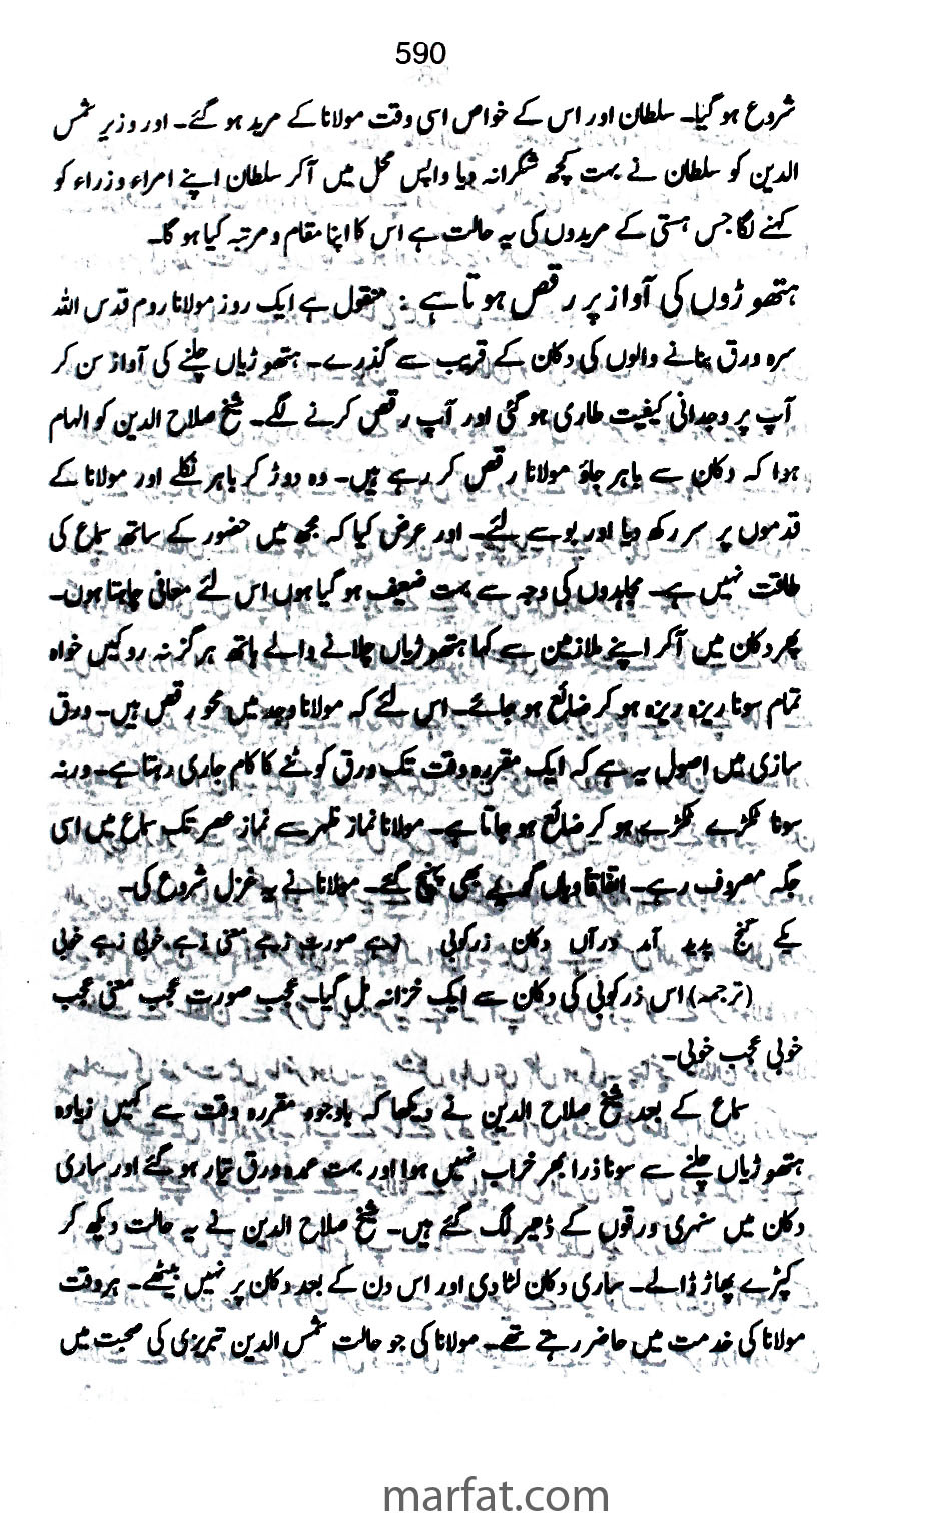 590
شروع ہو گیا۔ سلطان اور اس کے خواص اسی وقت مولانا کے مرید ہو گئے۔ اور وزیر شمس
الدین کو سلطان نے بہت کچھ شکرانہ دیا واپس محل میں آکر سلطان اپنے امراء وزراء کو
کہنے لگا جس ہستی کے مریدوں کی یہ حالت ہے اس کا اپنا مقام و مرتبہ کیا ہو گا۔
ہتھوڑوں کی آواز پر رقص ہوتا ہے : منقول ہے ایک روز مولانا روم قدس اللہ
سرہ ورق بنانے والوں کی دکان کے قریب سے گذرے۔ ہتھوڑیاں چلنے کی آواز سن کر
آپ پر وجدانی کیفیت طاری ہو گئی اور آپ رقص کرنے لگے۔ شیخ صلاح الدین کو الہام
ہوا کہ دکان سے باہر جاؤ مولانا رقص کر رہے ہیں۔ وہ دوڑ کر باہر نکلے اور مولانا کے
قدموں پر سر رکھ دیا اور بوسے لئے۔ اور عرض کیا کہ مجھ میں حضور کے ساتھ سماع کی
طاقت نہیں ہے۔ مجاہدوں کی وجہ سے بہت ضعیف ہو گیا ہوں اس لئے معافی چاہتا ہوں۔
پھر دکان میں آکر اپنے ملازمین سے کہا ہتھوڑیاں چلانے والے ہاتھ ہرگز نہ روکیں خواہ
تمام سونا ریزہ ریزہ ہو کر ضائع ہو جائے۔ اس لئے کہ مولانا وجد میں محو رقص ہیں۔ ورق
سازی میں اصول یہ ہے کہ ایک مقررہ وقت تک ورق کوٹنے کا کام جاری رہتا ہے۔ ورنہ
سونا ٹکڑے ٹکڑے ہو کر ضائع ہو جاتا ہے۔ مولانا نماز ظہر سے نماز عصر تک سماع میں اسی
جگہ مصروف رہے۔ اتفاقا وہاں گویے بھی پہنچ گئے۔ مولانا نے یہ غزل شروع کی۔
یکے گنج پدید آمد درآں دکان زرکوبی زہے صورت زہے معنی زہے خوبی زہے خوبی
(ترجمہ) اس زرکوبی کی دکان سے ایک خزانہ مل گیا۔ عجب صورت عجب معنی عجب
خوبی عجب خوبی۔
سماع کے بعد شیخ صلاح الدین نے دیکھا کہ باوجود مقررہ وقت سے کہیں زیادہ
ہتھوڑیاں چلنے سے سونا ذرا بھر خراب نہیں ہوا اور بہت عمدہ ورق تیار ہو گئے اور ساری
دکان میں سنہری ورقوں کے ڈھیر لگ گئے ہیں۔ شیخ صلاح الدین نے یہ حالت دیکھ کر
کپڑے پھاڑ ڈالے۔ ساری دکان لٹا دی اور اس دن کے بعد دکان پر نہیں بیٹھے۔ ہر وقت
مولانا کی خدمت میں حاضر رہتے تھے۔ مولانا کی جو حالت شمس الدین تبریزی کی صحبت میں
marfat.com